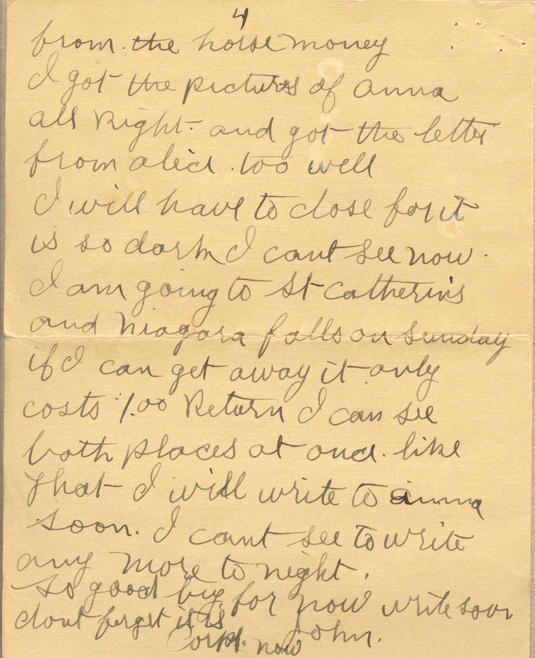 4
from the horse money
I got the pictures of anna
all right and got the letter
from alice too well
I will have to close for it
is so dark I cant see now.
I am going to St Catherins
and Niagara falls on Sunday
if I can get away it only
costs 1.00 Return I can see
both places at once like
that I will write to anna
soon. I cant see to write
any more to night.
so good bye for now write soon
dont forget it is
Corpl. now John.